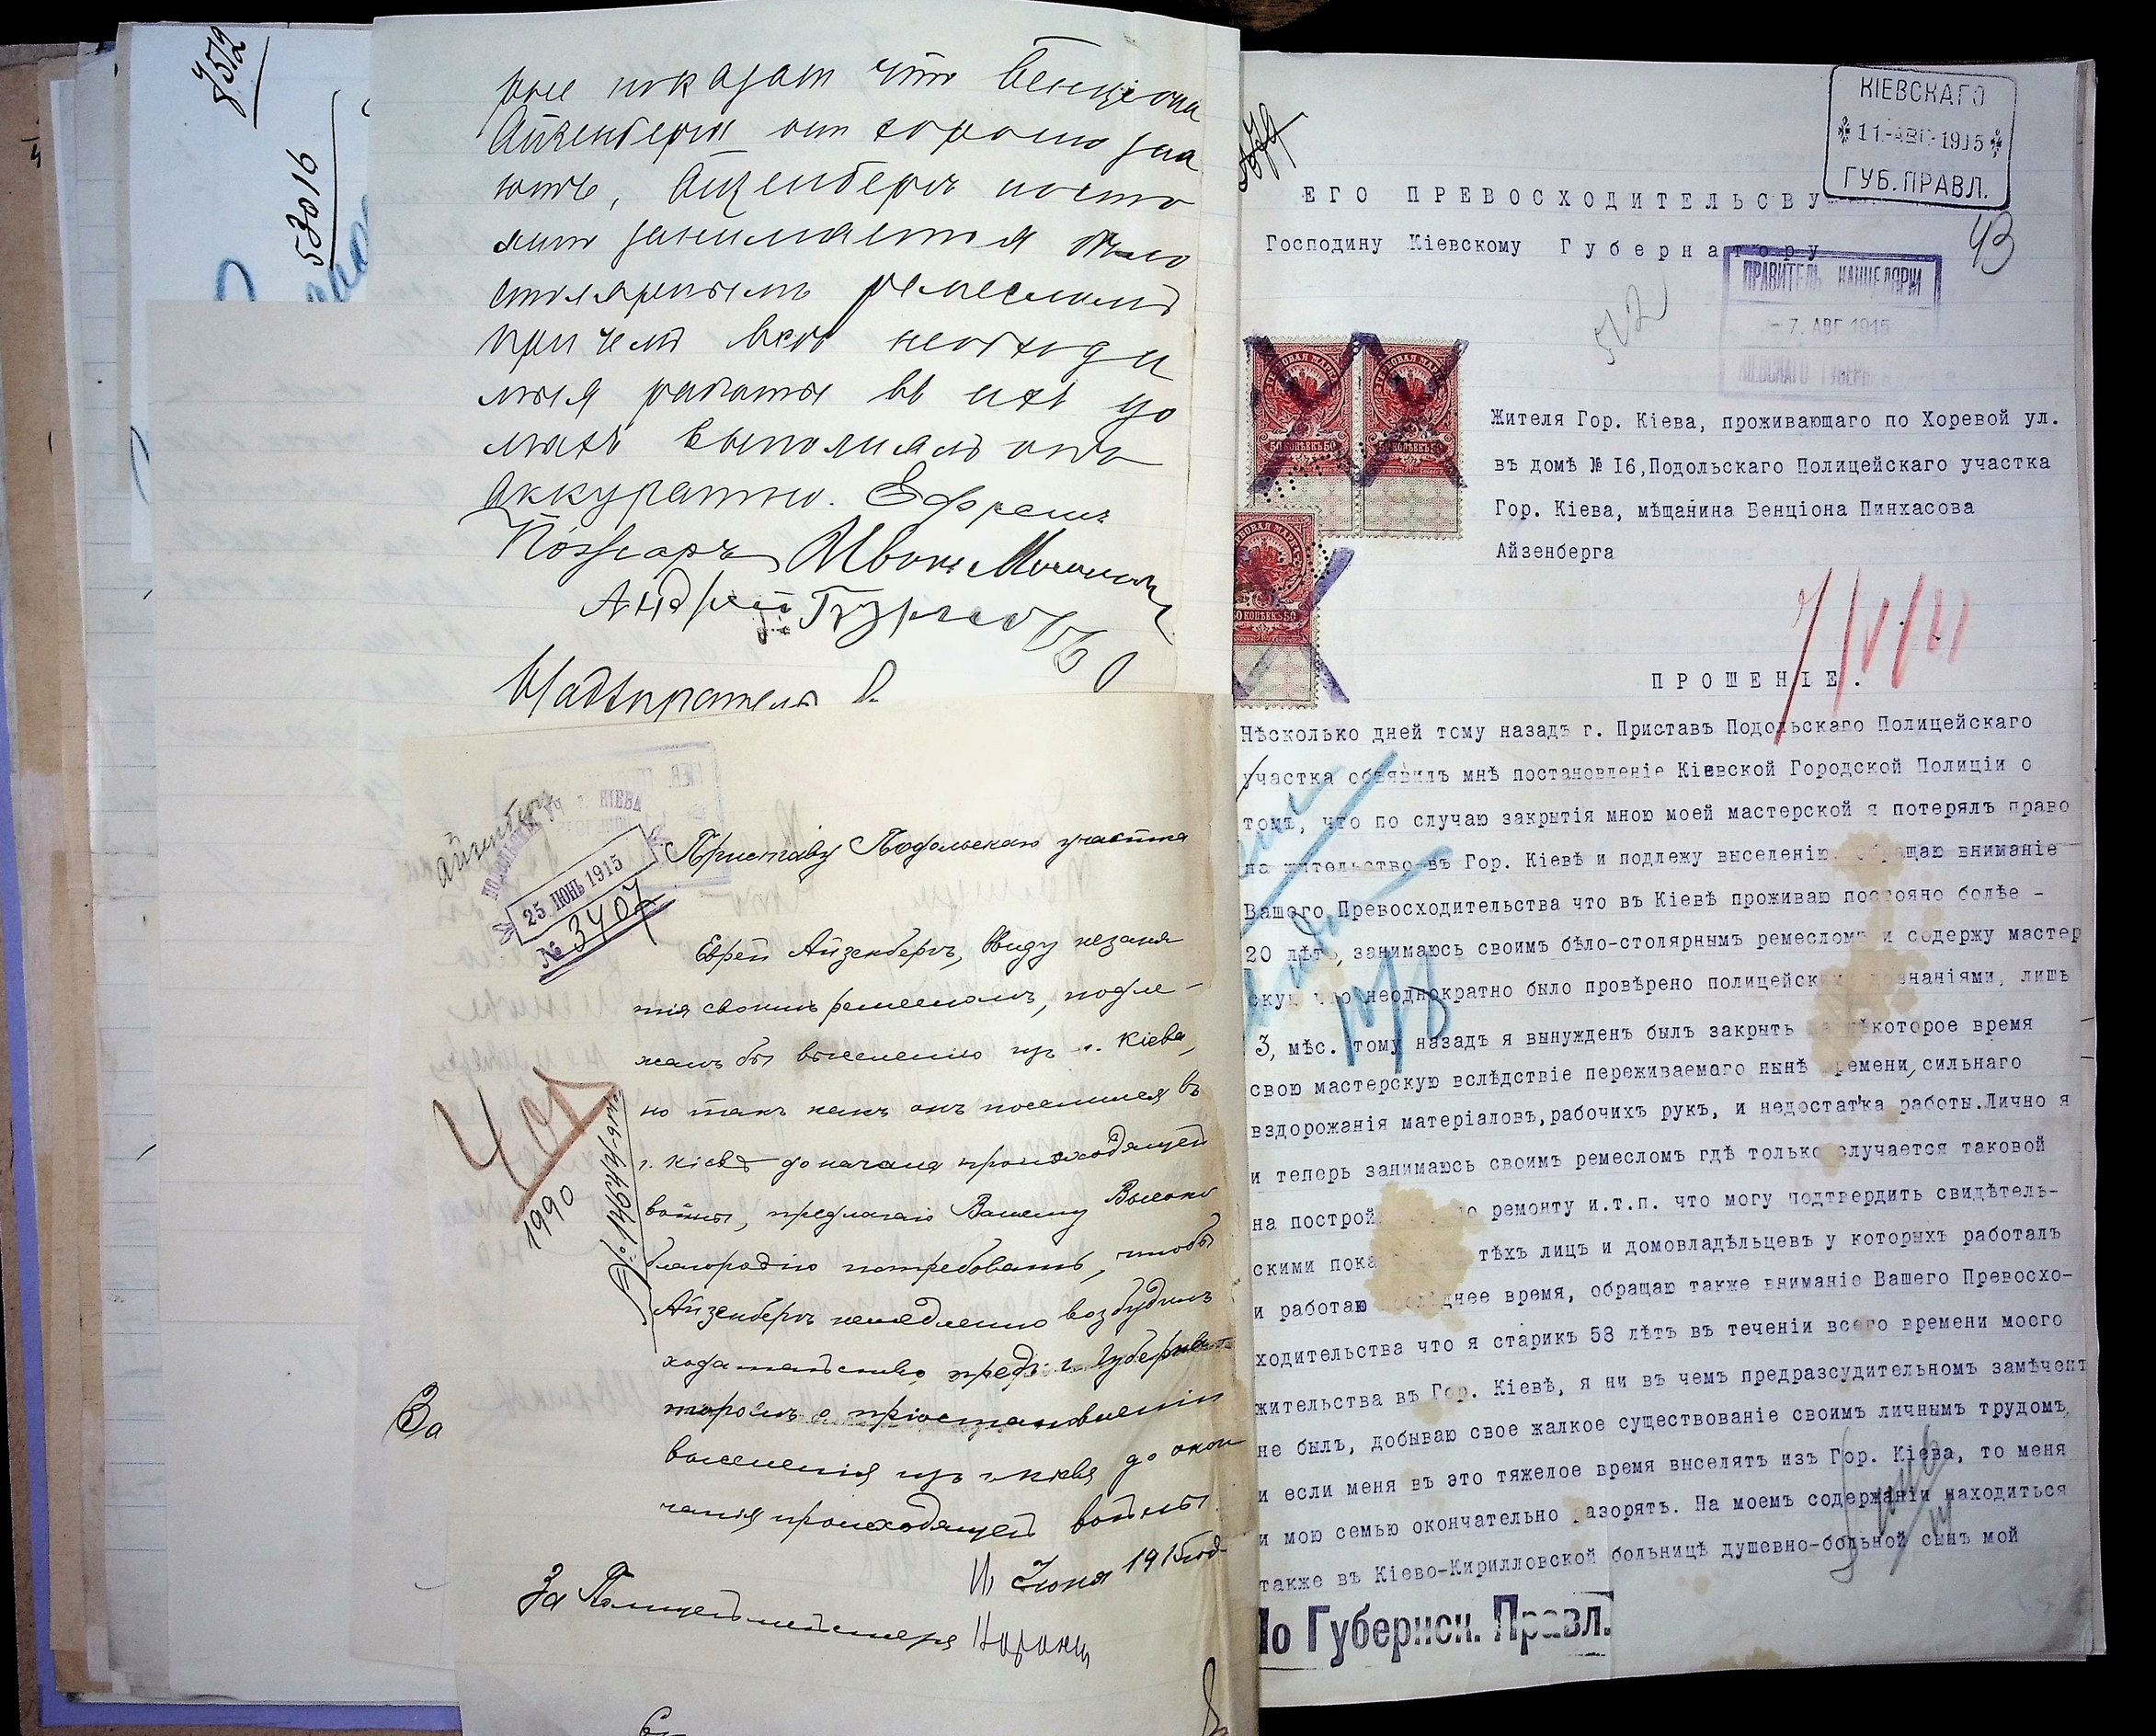 8512
53016
рые показали что Бенціона
Айзенберга они хорошо зна
ютъ, Айзенбергъ посто
янно занимается бѣло
столярнымъ ремесломъ
причемъ всѣ необходи
мыя работы въ ихъ до
махъ выполнялъ онъ
аккуратно. Ефремъ
Пожаръ Иванъ
Андрей
Надзиратель
Айзенбергъ
25 ІЮНЬ 1915
№ 3407
Приставу Подольскаго участка
Еврей Айзенбергъ, ввиду незаня
тія своимъ ремесломъ, подле-
жалъ бы выселенію изъ г. Кіева,
но такъ какъ онъ поселился въ
г. Кіевѣ до начала происходящей
войны, предлагаю Вашему Высоко
благородію потребовать, чтобы
Айзенбергъ немедленно возбудилъ
ходатайство предъ г. Губерна
торомъ о пріостановленіи
выселенія изъ г. Кіева до окон
чанія происходящей войны.
Іюня 1915 год
За Полицеймейстера
1990
За
КІЕВСКАГО
11 АВГ 1915
ГУБ. ПРАВЛ.
43
ЕГО ПРЕВОСХОДИТЕЛЬСВУ
Господину Кіевскому Губернатору
ПРАВИТЕЛЬ КАНЦЕЛЯРІИ
7. АВГ 1915
КІЕВСКАГО ГУБЕРН
512
50 КОПѢЕКЪ 50
50 КОПѢЕКЪ 50
Жителя Гор. Кіева, проживающаго по Хоревой ул.
въ домѣ № I6,Подольскаго Полицейскаго участка
Гор. Кіева, мѣщанина Бенціона Пинхасова
Айзенберга
ПРОШЕНІЕ.
Нѣсколько дней тому назадъ г. Приставъ Подольскаго Полицейскаго
участка объявилъ мнѣ постановленіе Кіевской Городской Полиціи о
томъ, что по случаю закрытія мною моей мастерской я потерялъ право
на жительство въ Гор. Кіевѣ и подлежу выселенію. Обращаю вниманіе
Вашего Превосходительства что въ Кіевѣ проживаю постояно болѣе -
20 лѣтъ, занимаюсь своимъ бѣло-столярнымъ ремесломъ и содержу мастер
скую что неоднократно было провѣрено полицейскими дознаніями, лишь
3, мѣс. тому назадъ я вынужденъ былъ закрыть на нѣкоторое время
свою мастерскую вслѣдствіе переживаемаго нынѣ времени, сильнаго
вздорожанія матеріаловъ,рабочихъ рукъ, и недостатка работы.Лично я
и теперь занимаюсь своимъ ремесломъ гдѣ только случается таковой
на построй ремонту и.т.п. что могу подтвердить свидѣтель-
скими пока тѣхъ лицъ и домовладѣльцевъ у которыхъ работалъ
и работаю послѣднее время, обращаю также вниманіе Вашего Превосхо-
ходительства что я старикъ 58 лѣтъ въ теченіи всего времени моего
жительства въ Гор. Кіевѣ, я ни въ чемъ предразсудительномъ замѣченъ
не былъ, добываю свое жалкое существованіе своимъ личнымъ трудомъ,
и если меня въ это тяжелое время выселятъ изъ Гор. Кіева, то меня
и мою семью окончательно разорятъ. На моемъ содержаніи находиться
также въ Кіево-Кирилловской больницѣ душевно-больной сынъ мой
По Губернск. Правл.